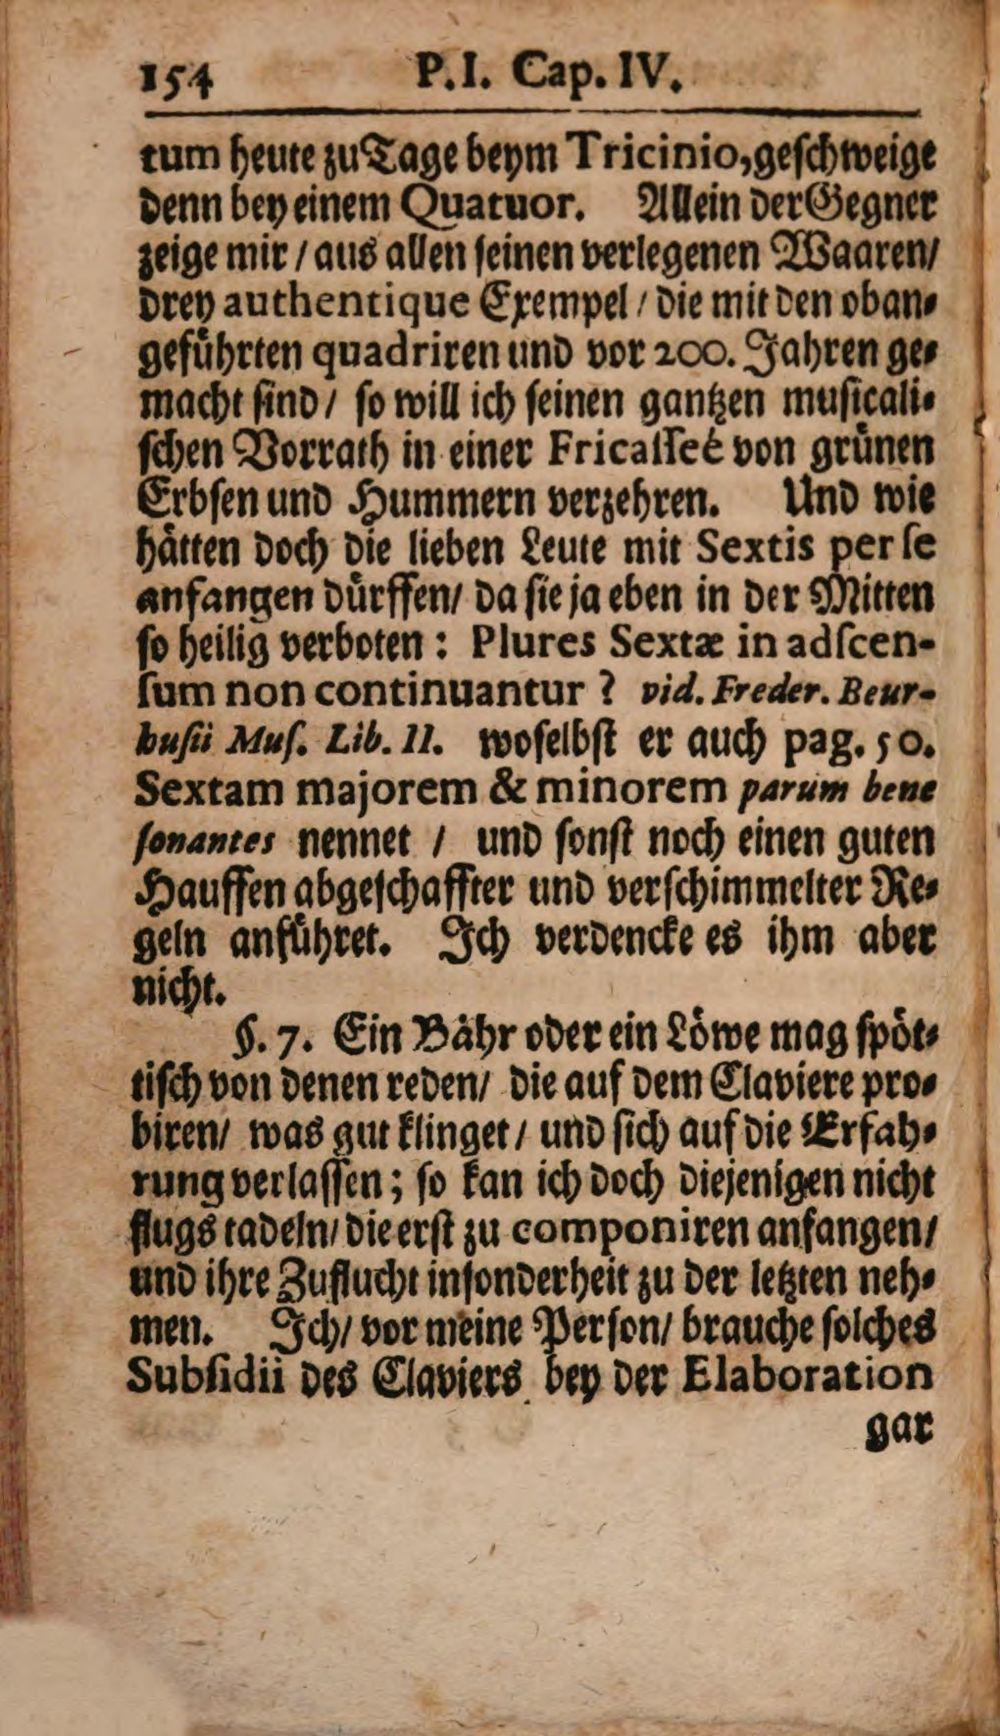 154 P. I. Cap. IV.
tum heute zu Tage beym Tricinio, geschweige
denn bey einem Quatuor. Allein der Gegner
zeige mir / aus allen seinen verlegenen Waaren/
drey authentique Exempel / die mit den oban-
geführten quadriren und vor 200. Jahren ge-
macht sind / so will ich seinen gantzen musicali-
schen Vorrath in einer Fricasseé von grünen
Erbsen und Hummern verzehren. Und wie
hätten doch die lieben Leute mit Sextis per se
anfangen dürffen/ da sie ja eben in der Mitten
so heilig verboten: Plures Sextæ in adscen-
sum non continuantur? vid. Freder. Beur-
husii Mus. Lib. II. woselbst er auch pag. 50.
Sextam majorem & minorem parum bene
sonantes nennet / und sonst noch einen guten
Hauffen abgeschaffter und verschimmelter Re-
geln anführet. Ich verdencke es ihm aber
nicht.
§. 7. Ein Bähr oder ein Löwe mag spöt-
tisch von denen reden/ die auf dem Claviere pro-
biren/ was gut klinget / und sich auf die Erfah-
rung verlassen; so kan ich doch diejenigen nicht
flugs tadeln/ die erst zu componiren anfangen/
und ihre Zuflucht insonderheit zu der letzten neh-
men. Ich/ vor meine Person/ brauche solches
Subsidii des Claviers bey der Elaboration
gar